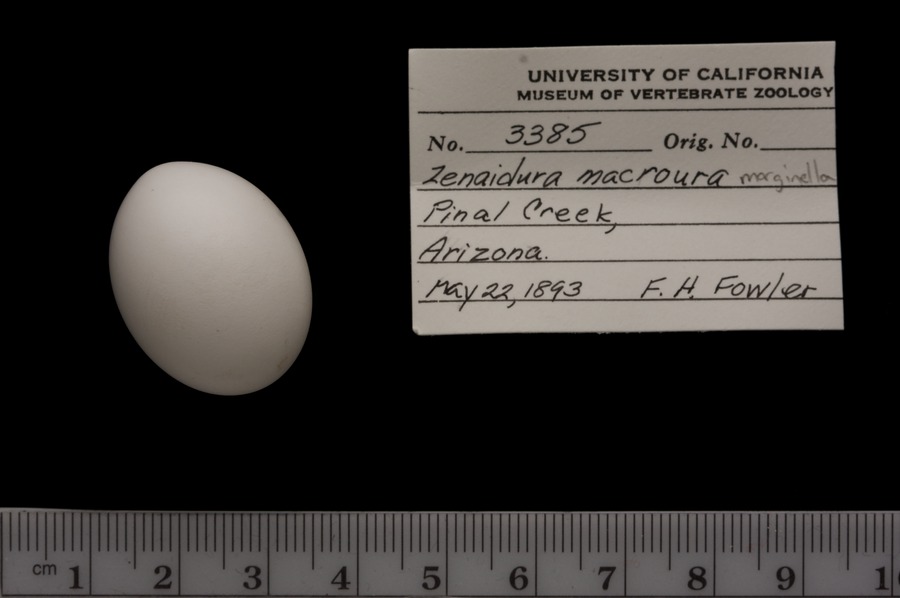 UNIVERSITY OF CALIFORNIA
MUSEUM OF VERTEBRATE ZOOLOGY
No. 3385 Orig. No.
Zenaidura macroura marginella
Pinal Creek,
Arizona.
May 22, 1893 F. H. Fowler
cm 1 2 3 4 5 6 7 8 9 1